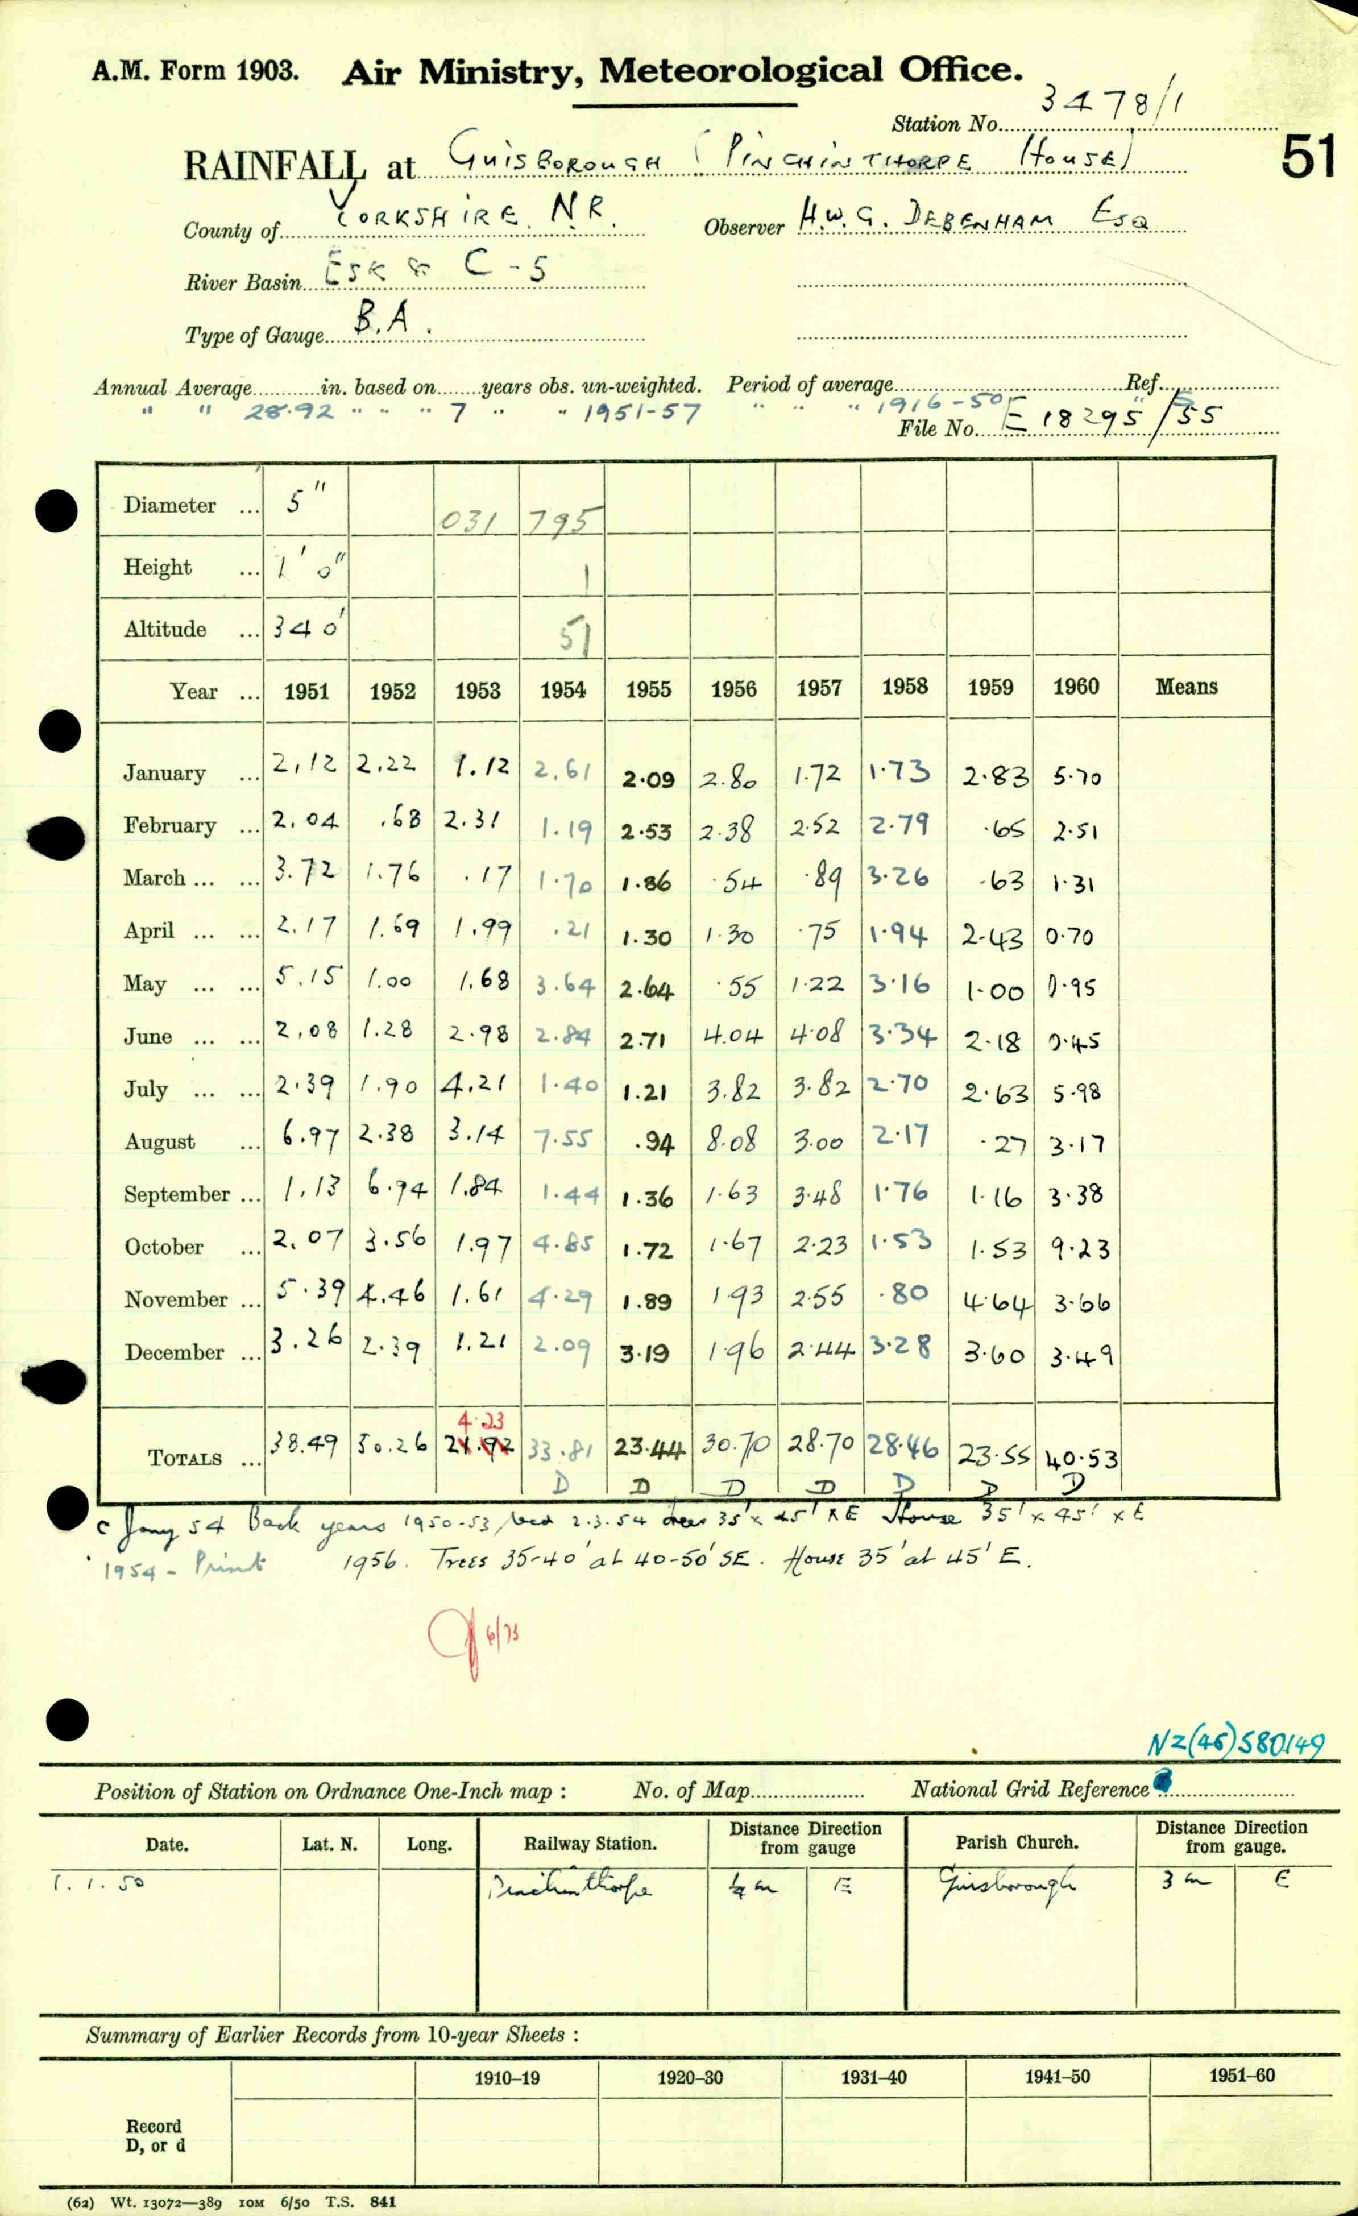 A.M. Form 1903. Air Ministry, Meteorological Office.
Station No. 3478/1
51
RAINFALL at Guisborough (Pinchinthorpe House)
County of Yorkshire N.R. Observer H.W.G. Debenham Esq
River Basin Esk & C-5
Type of Gauge B.A.
Annual Average in. based on years obs. un-weighted. Period of average Ref.
" " 28.92 " " " 7 " " 1951-57 " " " 1916-50 "
File No. E 18295/55
Diameter ... 5" 031 795
Height ... 1' 0" 1
Altitude ... 340' 51
Year ... 1951 1952 1953 1954 1955 1956 1957 1958 1959 1960 Means
January ... 2.12 2.22 1.12 2.61 2.09 2.80 1.72 1.73 2.83 5.70
February ... 2.04 .68 2.31 1.19 2.53 2.38 2.52 2.79 .65 2.51
March ... ... 3.72 1.76 .17 1.70 1.86 .54 .89 3.26 .63 1.31
April ... ... 2.17 1.69 1.99 .21 1.30 1.30 .75 1.94 2.43 0.70
May ... ... 5.15 1.00 1.68 3.64 2.64 .55 1.22 3.16 1.00 0.95
June ... ... 2.08 1.28 2.98 2.84 2.71 4.04 4.08 3.34 2.18 0.45
July ... ... 2.39 1.90 4.21 1.40 1.21 3.82 3.82 2.70 2.63 5.98
August ... 6.97 2.38 3.14 7.55 .94 8.08 3.00 2.17 .27 3.17
September ... 1.13 6.94 1.84 1.44 1.36 1.63 3.48 1.76 1.16 3.38
October ... 2.07 3.56 1.97 4.85 1.72 1.67 2.23 1.53 1.53 9.23
November ... 5.39 4.46 1.61 4.29 1.89 1.93 2.55 .80 4.64 3.66
December ... 3.26 2.39 1.21 2.09 3.19 1.96 2.44 3.28 3.60 3.49
4.23
Totals ... 38.49 30.26 24.92 33.81 23.44 30.70 28.70 28.46 23.55 40.53
D D D D D D D
C Jany 54 Back years 1950-53 2.3.54 trees 35' x 45' x E House 35' x 45' x E
1954 - Print 1956. Trees 35-40' at 40-50' SE. House 35' at 45' E.
6/73
NZ(45)580149
Position of Station on Ordnance One-Inch map : No. of Map National Grid Reference
Date. Lat. N. Long. Railway Station. Distance from Direction gauge Parish Church. Distance from Direction gauge.
1.1.50 Pinchinthorpe ¼ m E Guisborough 3 m E
Summary of Earlier Records from 10-year Sheets :
1910–19 1920–30 1931–40 1941–50 1951–60
Record
D, or d
(62) Wt. 13072—389 10M 6/50 T.S. 841